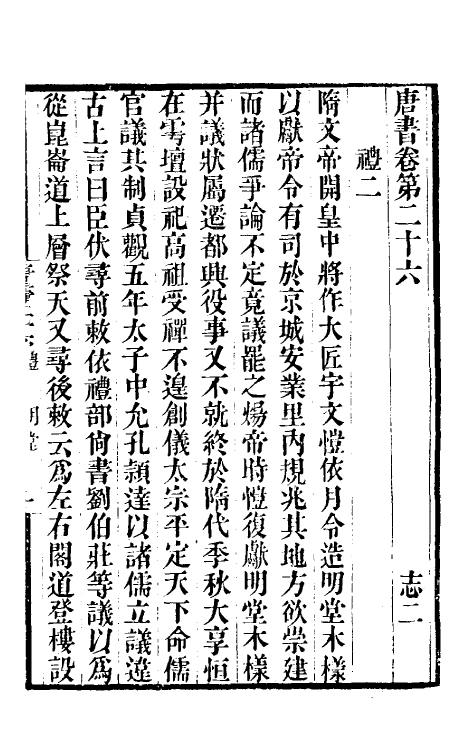 唐書卷第二十六 志二
禮二
隋文帝開皇中將作大匠宇文愷依月令造明堂木樣
以獻帝令有司於京城安業里內規兆其地方欲崇建
而諸儒爭論不定竟議罷之煬帝時愷復獻明堂木樣
并議狀屬遷都興役事又不就終於隋代季秋大享恒
在雩壇設祀高祖受禪不遑創儀太宗平定天下命儒
官議其制貞觀五年太子中允孔頴達以諸儒立議違
古上言曰臣伏尋前敕依禮部尙書劉伯莊等議以爲
從崑崙道上層祭天又尋後敕云爲左右閣道登樓設
禮 明堂 一